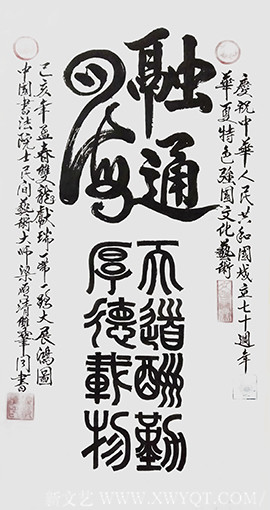 慶祝中華人民共和國成立七十週年
華夏特色強國文化藝術
融通
四海
天道酬勤
厚德載物
己亥年孟春雙龍獻瑞第一路大展鴻圖
中國書法院士民間藝術大師梁順清雙筆同書
新文艺 WWW.XWYQT.COM/